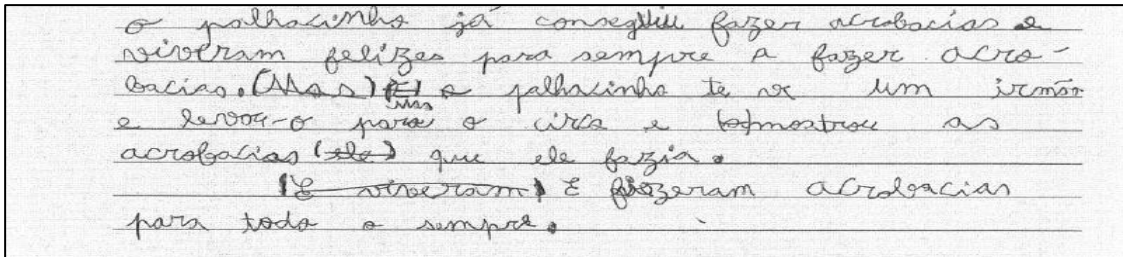 o palhacinho já conseguiu fazer acrobacias e
viveram felizes para sempre a fazer acro-
bacias. (Mas) E Mas o palhacinho teve um irmão
e levou-o para o circo e mostrou as
acrobacias (ele) que ele fazia.
(E viveram) E fizeram acrobacias
para todo o sempre.